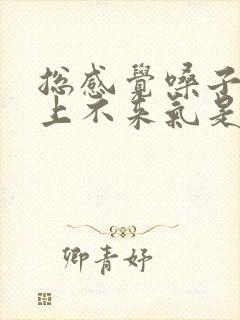 總感覺嗓子
上不来氣是
卿青妤